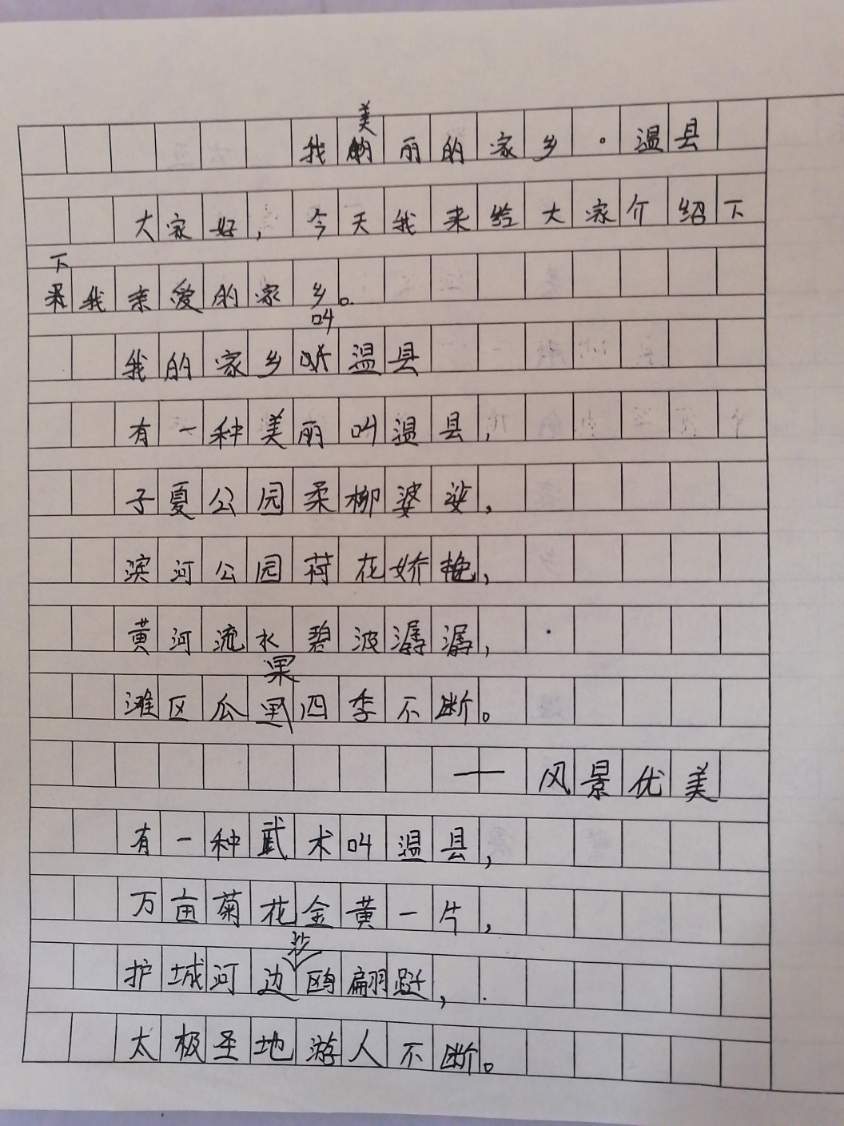 我美丽的家乡·温县
大家好，今天我来给大家介绍下
我亲爱的家乡。
我的家乡叫温县
有一种美丽叫温县，
子夏公园柔柳婆娑，
滨河公园荷花娇艳，
黄河流水碧波潺潺，
滩区瓜果四季不断。
——风景优美
有一种武术叫温县，
万亩菊花金黄一片，
护城河边沙鸥翩跹，
太极圣地游人不断。